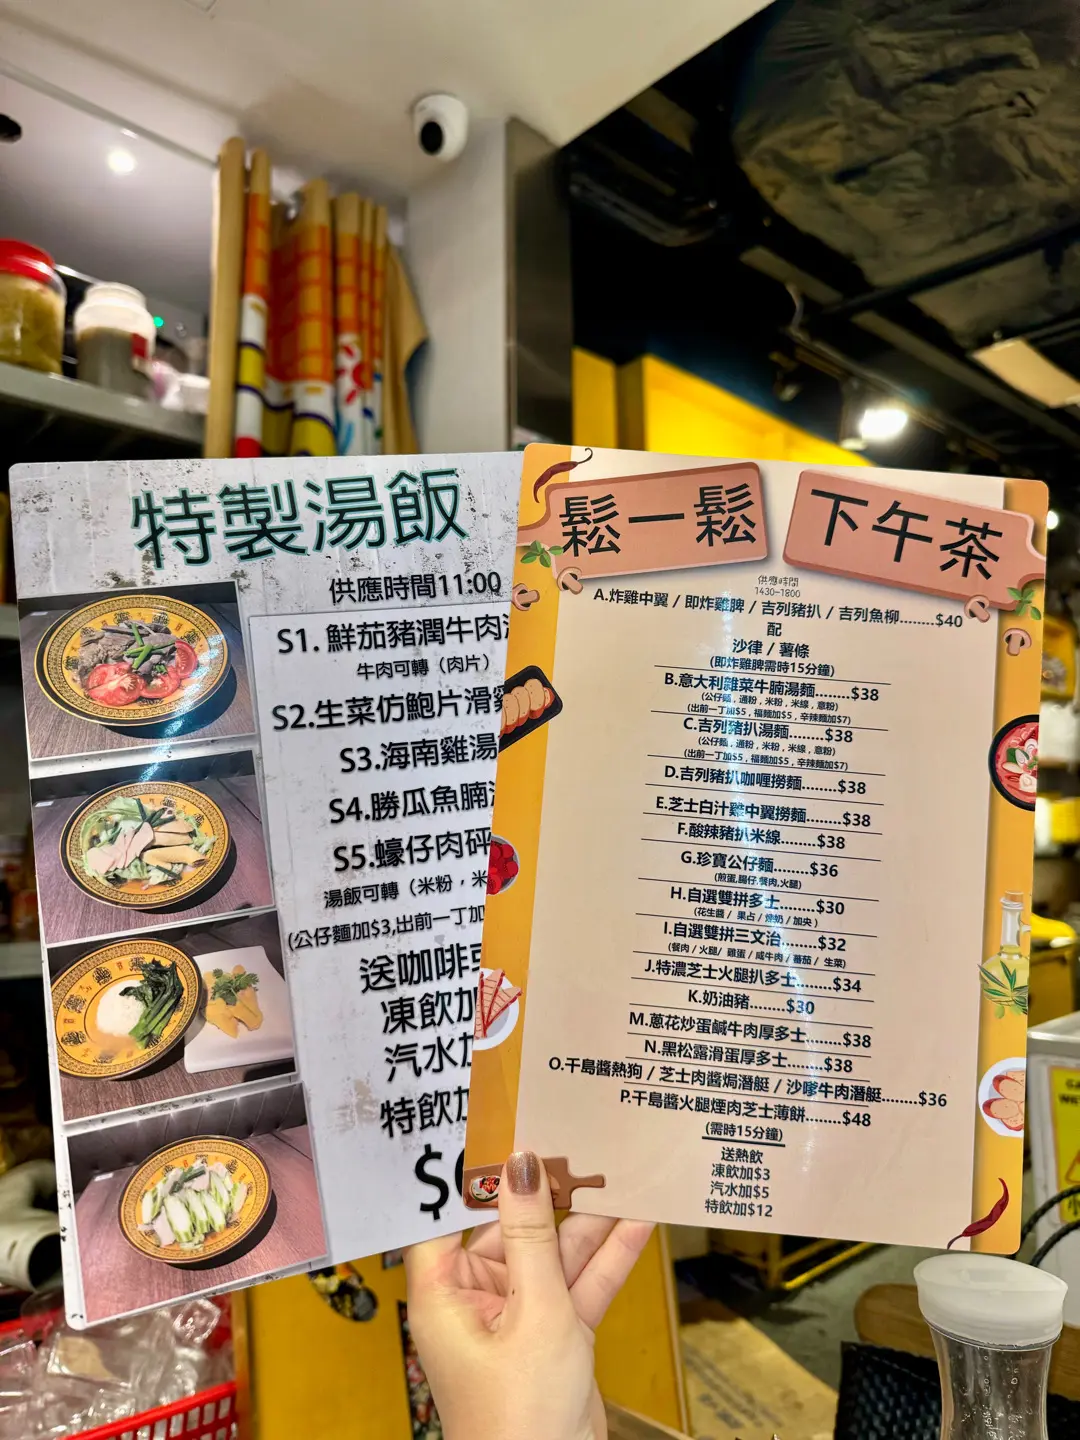 特製湯飯
供應時間11:00
S1. 鮮茄豬潤牛肉
牛肉可轉（肉片）
S2.生菜仿鮑片滑
S3.海南雞湯
S4.勝瓜魚腩
S5.蠔仔肉砰
湯飯可轉（米粉，米
(公仔麵加$3,出前一丁加
送咖啡
凍飲加
汽水加
特飲加
$
鬆一鬆
下午茶
供應時間
1430-1800
A.炸雞中翼 / 即炸雞髀 / 吉列豬扒 / 吉列魚柳........$40
配
沙律 / 薯條
(即炸雞髀需時15分鐘)
B.意大利雜菜牛腩湯麵........$38
(公仔麵，通粉，米粉，米線，意粉)
(出前一丁加$5，福麵加$5，辛辣麵加$7)
C.吉列豬扒湯麵........$38
(公仔麵，通粉，米粉，米線，意粉)
(出前一丁加$5，福麵加$5，辛辣麵加$7)
D.吉列豬扒咖喱撈麵........$38
E.芝士白汁雞中翼撈麵........$38
F.酸辣豬扒米線........$38
G.珍寶公仔麵........$36
(煎蛋,腸仔,餐肉,火腿)
H.自選雙拼多士........$30
(花生醬 / 果占 / 煉奶 / 加央 )
I.自選雙拼三文治........$32
(餐肉 / 火腿 / 雞蛋 / 咸牛肉 / 蕃茄 / 生菜)
J.特濃芝士火腿扒多士........$34
K.奶油豬........$30
M.蔥花炒蛋鹹牛肉厚多士........$38
N.黑松露滑蛋厚多士........$38
O.千島醬熱狗 / 芝士肉醬焗潛艇 / 沙嗲牛肉潛艇........$36
P.千島醬火腿煙肉芝士薄餅........$48
(需時15分鐘)
送熱飲
凍飲加$3
汽水加$5
特飲加$12